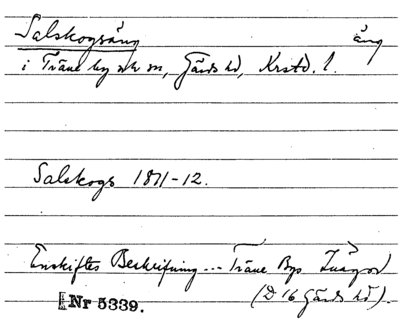 Salskogsäng äng
i Träne by och sn, Gärds hd, Krstd. l.
Salskogs 1811-12.
Enskiftes Beskrifning... Träne Bys Inägor
Nr 5339. (D 16 Gärds hd).